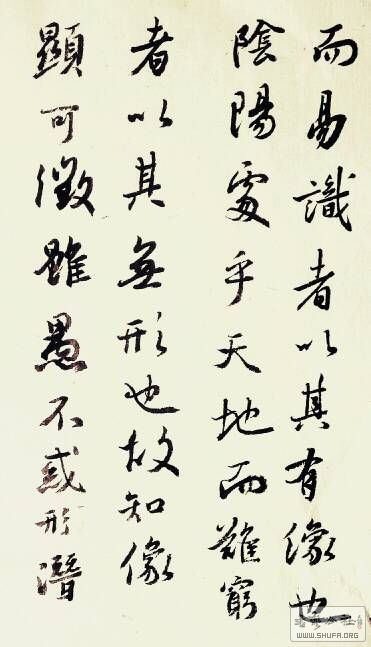 而易識者以其有像也
陰陽處乎天地而難窮
者以其無形也故知像
顯可徵雖愚不惑形潛
WWW.SHUFA.ORG